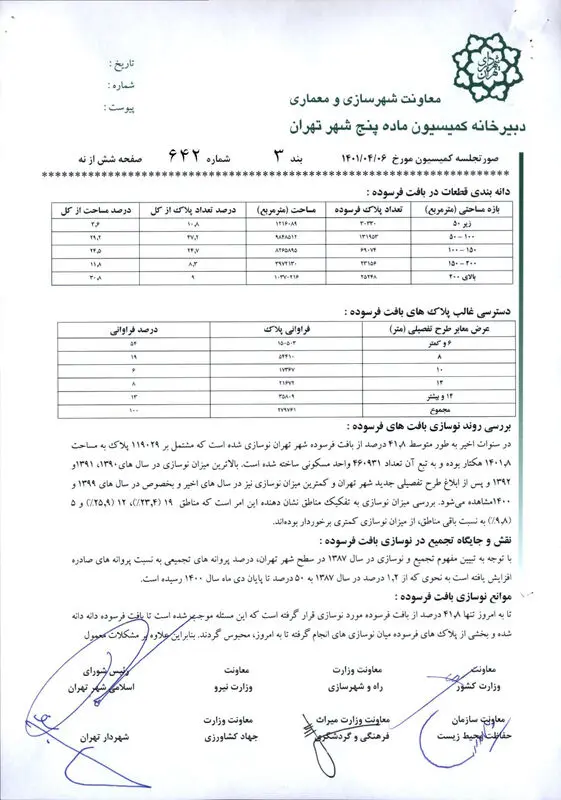 تاریخ :
شماره :
پیوست :
معاونت شهرسازی و معماری
دبیرخانه کمیسیون ماده پنج شهر تهران
صورتجلسه کمیسیون مورخ ۱۴۰۱/۰۴/۰۶ بند ۳ شماره ۶۴۲ صفحه شش از نه
دانه بندی قطعات در بافت فرسوده :
بازه مساحتی (مترمربع) تعداد پلاک فرسوده مساحت (مترمربع) درصد تعداد پلاک از کل درصد مساحت از کل
زیر ۵۰ ۳۰۳۳۰ ۱۲۱۶۰۸۹ ۱۰,۸ ۳,۶
۵۰ – ۱۰۰ ۱۳۱۹۵۳ ۹۸۴۸۵۱۲ ۴۷,۲ ۲۹,۲
۱۰۰ – ۱۵۰ ۶۹۰۷۴ ۸۲۶۵۸۹۵ ۲۴,۷ ۲۴,۵
۱۵۰ – ۲۰۰ ۲۳۱۵۶ ۳۹۷۲۱۳۰ ۸,۳ ۱۱,۸
بالای ۲۰۰ ۲۵۲۴۸ ۱۰۳۷۰۲۱۶ ۹ ۳۰,۸
دسترسی غالب پلاک های بافت فرسوده :
عرض معابر طرح تفصیلی (متر) فراوانی پلاک درصد فراوانی
۶ و کمتر ۱۵۰۵۰۳ ۵۴
۸ ۵۴۴۱۰ ۱۹
۱۰ ۱۷۳۶۷ ۶
۱۲ ۲۱۶۷۲ ۸
۱۴ و بیشتر ۳۵۸۰۹ ۱۳
مجموع ۲۷۹۷۶۱ ۱۰۰
بررسی روند نوسازی بافت های فرسوده :
در سنوات اخیر به طور متوسط ۴۱,۸ درصد از بافت فرسوده شهر تهران نوسازی شده است که مشتمل بر ۱۱۹۰۲۹ پلاک به مساحت
۱۴۰۱,۸ هکتار بوده و به تبع آن تعداد ۴۶۰۹۳۱ واحد مسکونی ساخته شده است. بالاترین میزان نوسازی در سال های۱۳۹۰، ۱۳۹۱و
۱۳۹۲ و پس از ابلاغ طرح تفصیلی جدید شهر تهران و کمترین میزان نوسازی نیز در سال های اخیر و بخصوص در سال های ۱۳۹۹ و
۱۴۰۰مشاهده می‌شود. بررسی میزان نوسازی به تفکیک مناطق نشان دهنده این امر است که مناطق ۱۹ (۲۳,۴٪)، ۱۲ (۲۵,۹٪) و ۵
(۹,۸٪) به نسبت باقی مناطق، از میزان نوسازی کمتری برخوردار بوده‌اند.
نقش و جایگاه تجمیع در نوسازی بافت فرسوده :
با توجه به تبیین مفهوم تجمیع و نوسازی در سال ۱۳۸۷ در سطح شهر تهران، درصد پروانه های تجمیعی به نسبت پروانه های صادره
افزایش یافته است به نحوی که از ۱,۲ درصد در سال ۱۳۸۷ به ۵۰ درصد تا پایان دی ماه سال ۱۴۰۰ رسیده است.
موانع نوسازی بافت فرسوده :
تا به امروز تنها ۴۱,۸ درصد از بافت فرسوده مورد نوسازی قرار گرفته است که این مسئله موجب شده است تا بافت فرسوده دانه دانه
شده و بخشی از پلاک های فرسوده میان نوسازی های انجام گرفته تا به امروز، محبوس گردند. بنابراین علاوه بر مشکلات معمول
معاونت معاونت وزارت معاونت رئیس شورای
وزارت کشور راه و شهرسازی وزارت نیرو اسلامی شهر تهران
معاونت سازمان معاونت وزارت میراث معاونت وزارت
حفاظت محیط زیست فرهنگی و گردشگری جهاد کشاورزی شهردار تهران